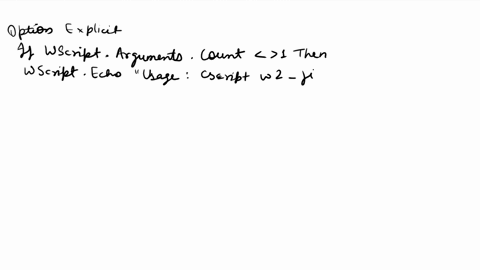 Option Explicit
If WScript.Arguments.Count <>1 Then
WScript.Echo "Usage: Cscript w2_fi